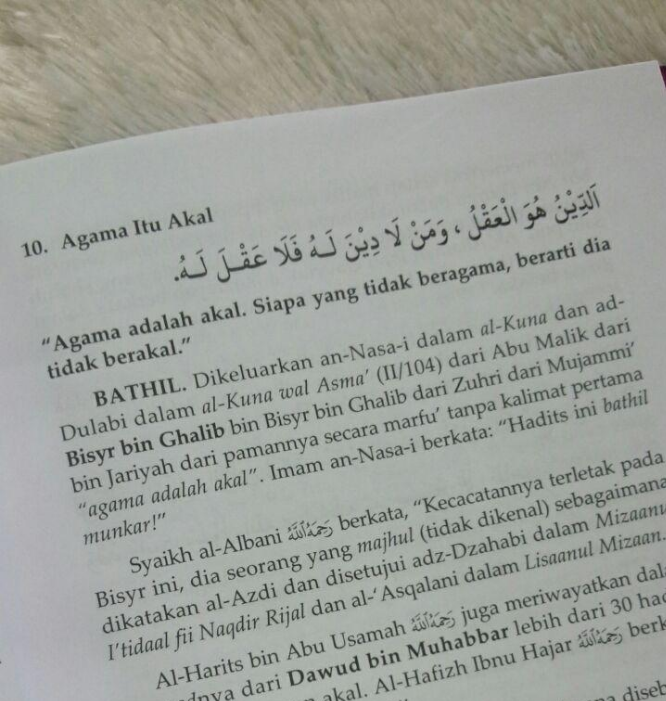 10. Agama Itu Akal
اَلدِّيْنُ هُوَ الْعَقْلُ ، وَمَنْ لَا دِيْنَ لَهُ فَلَا عَقْلَ لَهُ.
"Agama adalah akal. Siapa yang tidak beragama, berarti dia
tidak berakal."
BATHIL. Dikeluarkan an-Nasa-i dalam al-Kuna dan ad-
Dulabi dalam al-Kuna wal Asma' (II/104) dari Abu Malik dari
Bisyr bin Ghalib bin Bisyr bin Ghalib dari Zuhri dari Mujammi'
bin Jariyah dari pamannya secara marfu' tanpa kalimat pertama
"agama adalah akal". Imam an-Nasa-i berkata: "Hadits ini bathil
munkar!"
Syaikh al-Albani رَحِمَهُ اللَّهُ berkata, "Kecacatannya terletak pada
Bisyr ini, dia seorang yang majhul (tidak dikenal) sebagaimana
dikatakan al-Azdi dan disetujui adz-Dzahabi dalam Mizaanu
I'tidaal fii Naqdir Rijal dan al-'Asqalani dalam Lisaanul Mizaan.
Al-Harits bin Abu Usamah رَحِمَهُ اللَّهُ juga meriwayatkan
dari Dawud bin Muhabbar lebih dari 30
akal. Al-Hafizh Ibnu Hajar رَحِمَهُ اللَّهُ